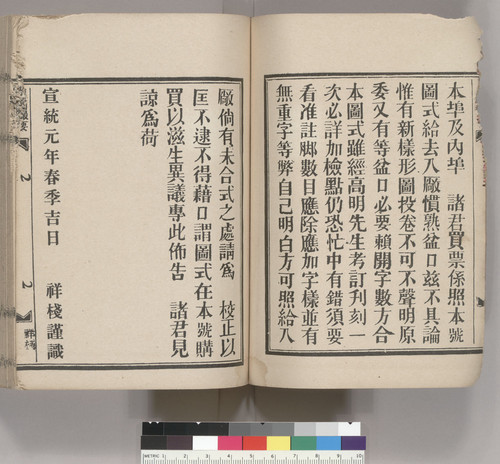 本埠及內埠　諸君買票係照本號
圖式給去入廠慣熟盆口茲不具論
惟有新樣形圖投卷不可不聲明原
委又有等盆口必要賴開字數方合
本圖式雖經高明先生考訂刋刻一
次必詳加檢點仍恐忙中有錯須要
看准註脚數目應除應加字樣並有
無重字等弊自己明白方可照給入
廠倘有未合式之處請爲　校正以
匡不逮不得藉口謂圖式在本號購
買以滋生異議專此佈告　諸君見
諒爲荷
宣統元年春季吉日　祥棧謹識
2
2
METRIC 1 2 3 4 5 6 7 8 9 10